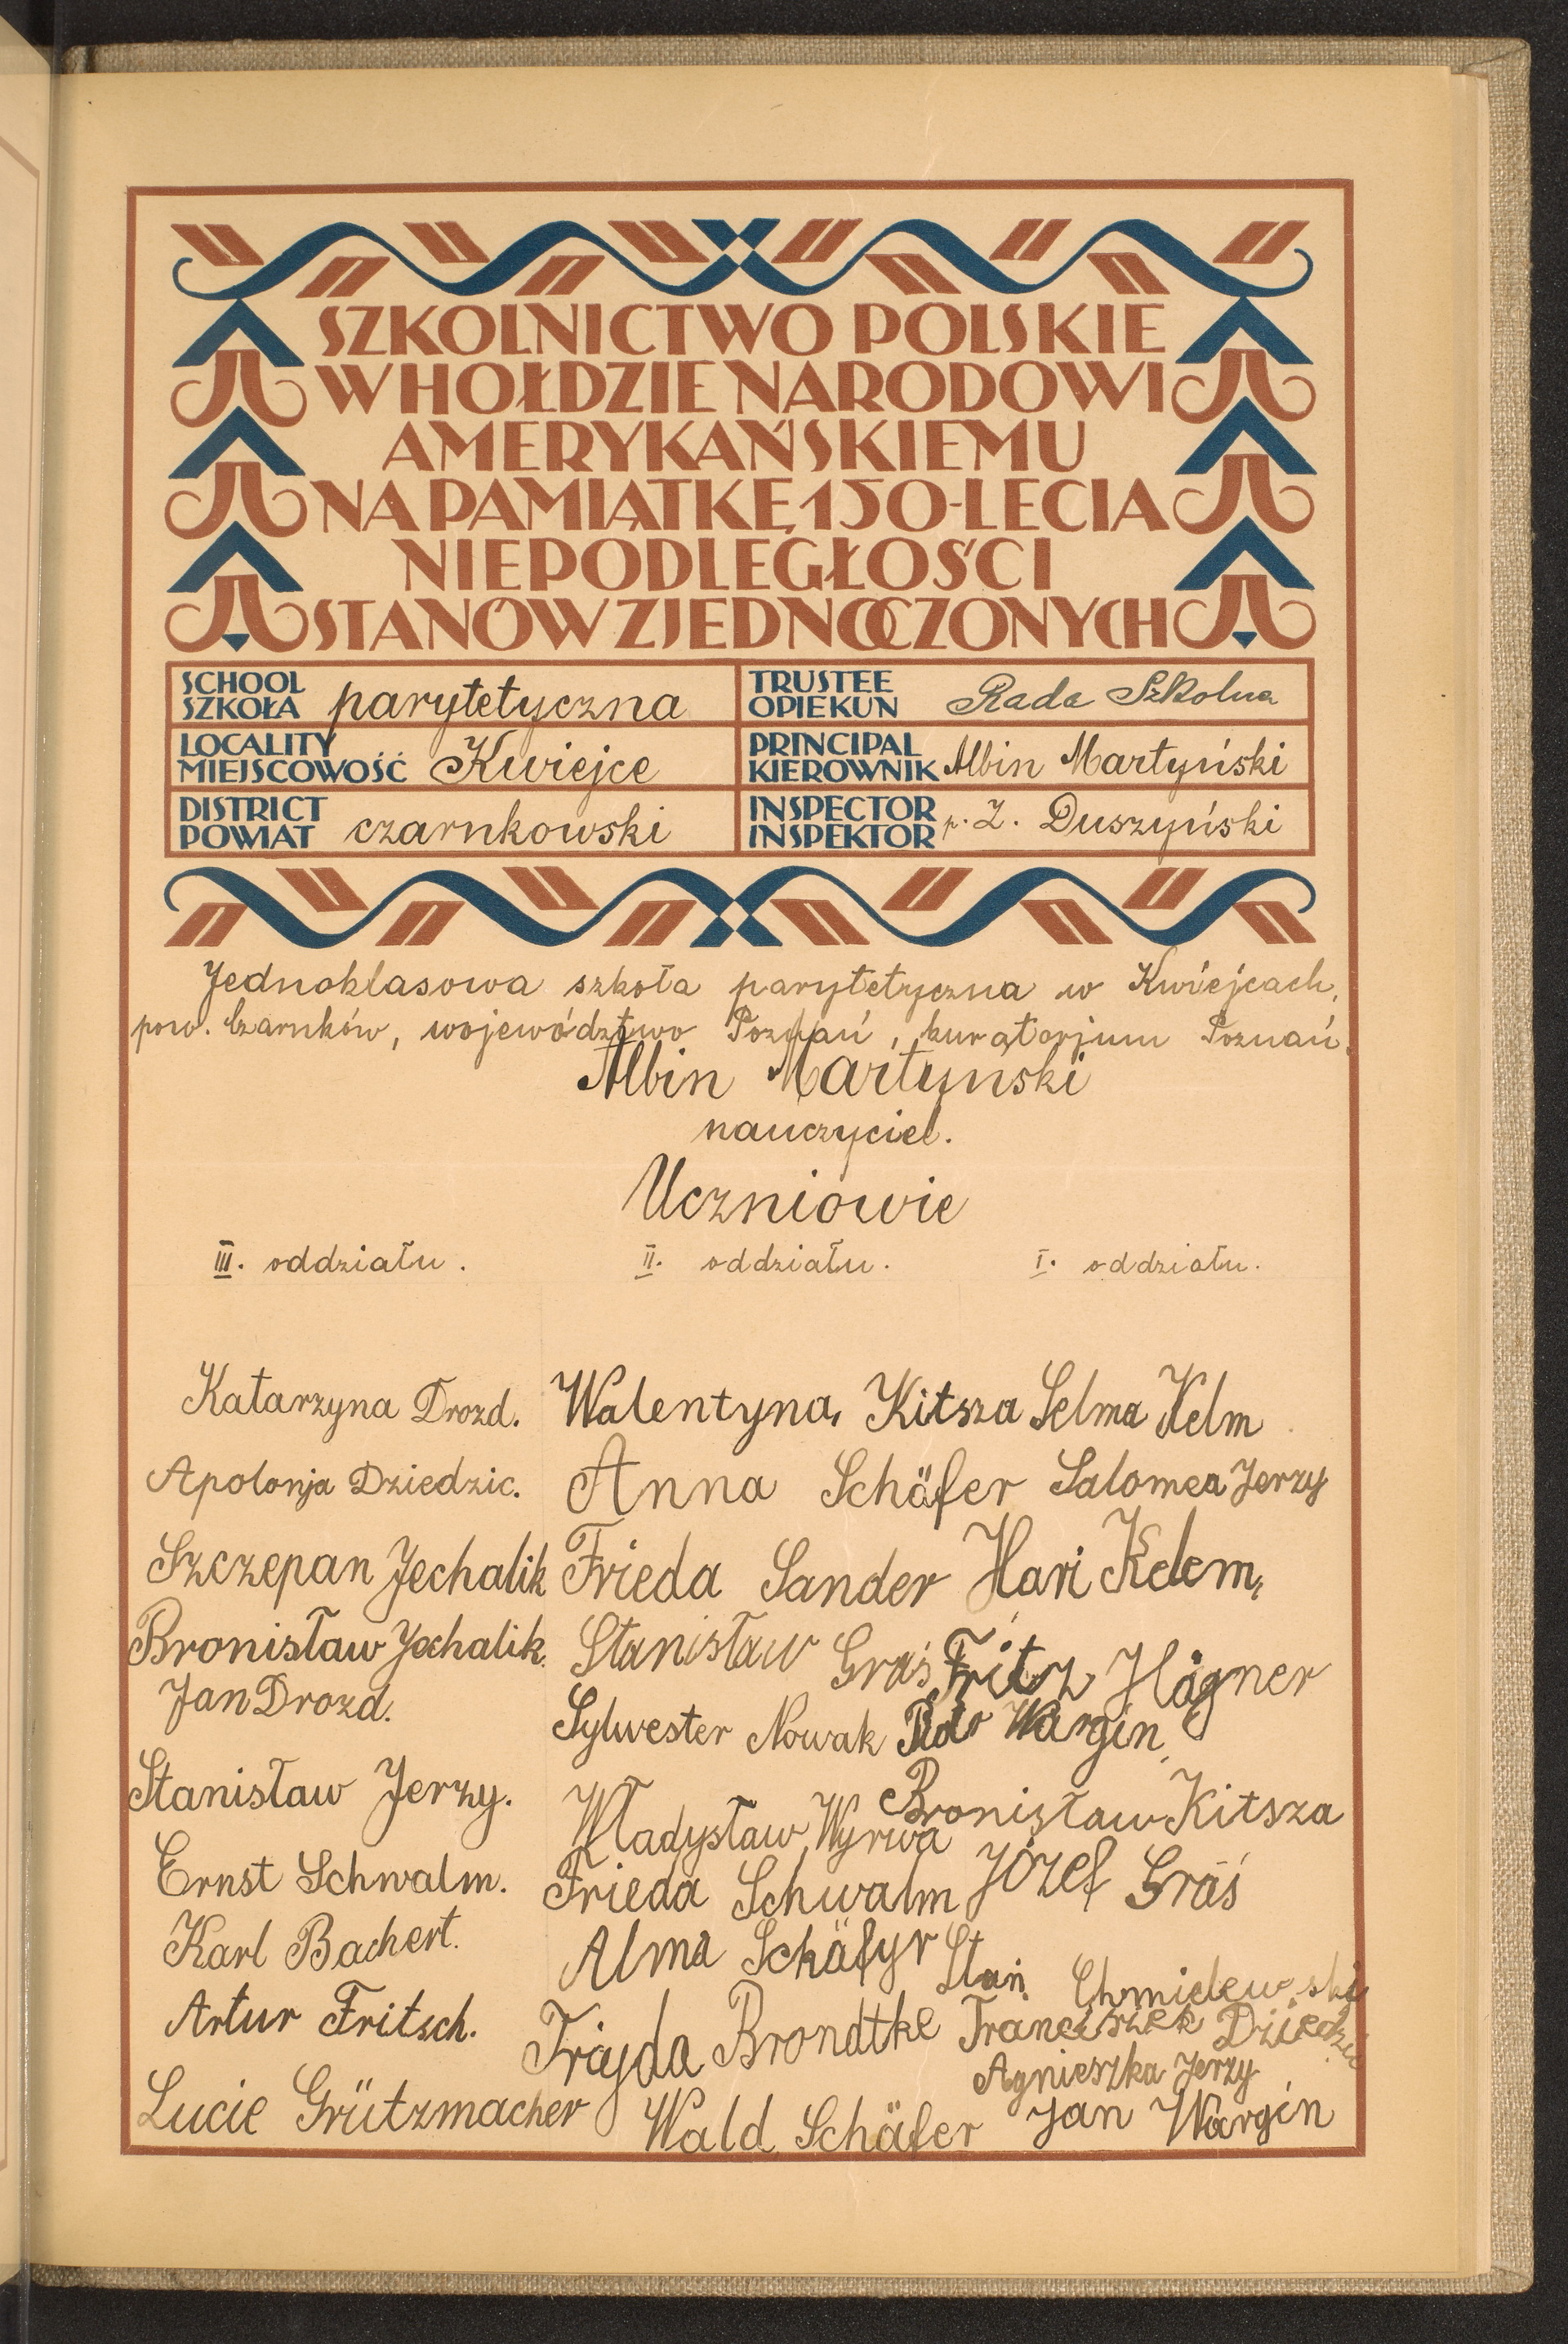 SZKOLNICTWO POLSKIE
W HOŁDZIE NARODOWI
AMERYKAŃSKIEMU
NA PAMIĄTKĘ 150-LECIA
NIEPODLEGŁOŚCI
STANÓW ZJEDNOCZONYCH
SCHOOL
SZKOŁA parytetyczna
TRUSTEE
OPIEKUN Rada Szkolna
LOCALITY
MIEJSCOWOŚĆ Kwiejce
PRINCIPAL
KIEROWNIK Albin Martyński
DISTRICT
POWIAT czarnkowski
INSPECTOR
INSPEKTOR p. Z. Duszyński
Jednoklasowa szkoła parytetyczna w Kwiejcach,
pow. Czarnków, województwo Poznań, kuratorjum Poznań.
Albin Martynski
nauczyciel.
Uczniowie
III. oddziału.
Katarzyna Drozd.
Apolonja Dziedzic.
Szczepan Jechalik
Bronisław Jechalik.
Jan Drozd.
Stanisław Jerzy.
Ernst Schwalm.
Karl Bachert.
Artur Fritsch.
Lucie Grützmacher
II. oddziału.
Walentyna Kitsza
Anna Schäfer
Frieda Sander
Stanisław Graś
Sylwester Nowak
Władysław Wyrwa
Frieda Schwalm
Alma Schäfyr
Friyda Brondtke
Wald Schäfer
I. oddziału.
Selma Kelm
Salomea Jerzy
Hari Kelem,
Fritz Hägner
Wargin
Bronisław Kitsza
Józef Graś
Stan. Chmielewski
Franciszek Dziedzic
Agnieszka Jerzy
Jan Wargin